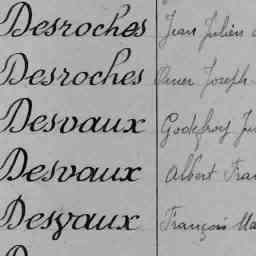 Desroches Jean Julien
Desroches Omer Joseph
Desvaux Godefroy Ju
Desvaux Albert Fran
Desvaux François Ma